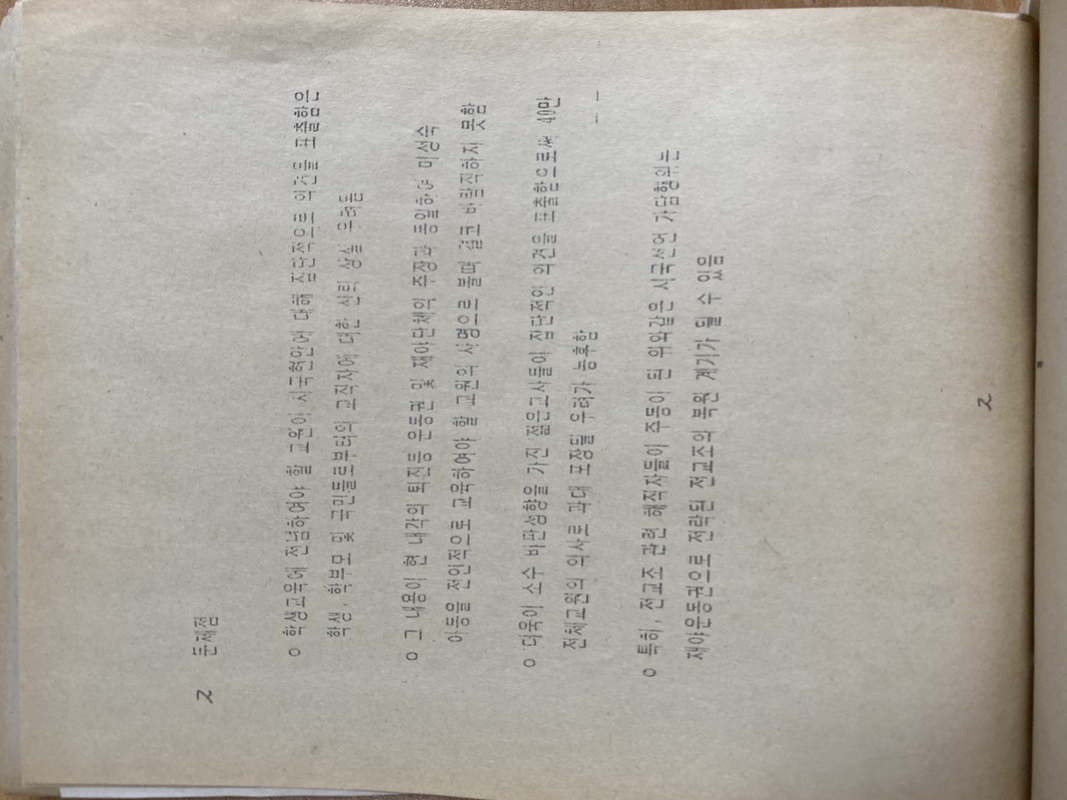 2 문제점
o 학생교육에 전념하여야 할 교원이 시국현안에 대해 집단적으로 의견을 표출함은
학생, 학부모 및 국민들로부터의 교직자에 대한 신뢰 상실 우려됨
o 그 내용이 현 내각의 퇴진등 운동권 및 재야단체의 주장과 동일하여 미성숙
아동을 전인적으로 교육하여야 할 교원의 사명으로 볼때 결코 바람직하지 못함
o 더욱이 소수 비판성향을 가진 젊은교사들이 집단적인 의견을 표출함으로써 40만
전체교원의 의사로 과대 포장될 우려가 농후함
o 특히, 전교조 관련 해직자들이 주동이 된 위와같은 시국선언 가담행위는
재야운동권으로 전락된 전교조의 복원 계기가 될 수 있음
2